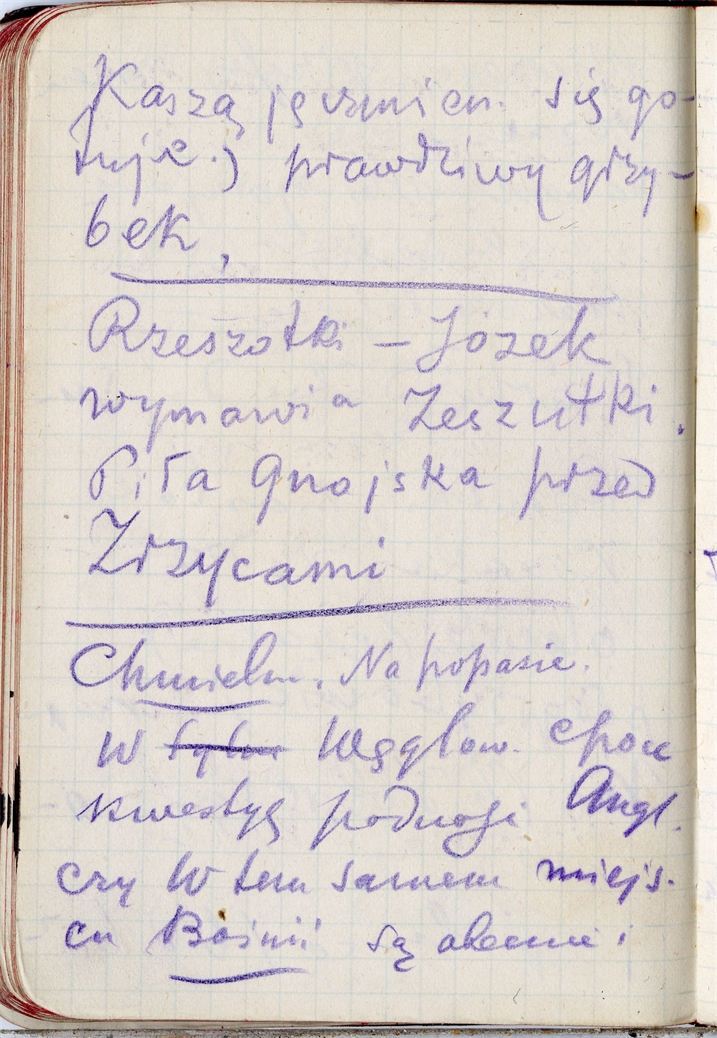 Kaszą jęczmien. się go-
tuje.) prawdziwy grzy-
bek,
Rzeszotki – Józek
wymawia Zeszutki.
Piła Gnojska przed
Zrzycami
Chmieln. Na popasie.
W Węglow. epoce
kwestyę podnosi Angl.
czy w tem samem miejs-
cu Bośnii są obecnie i